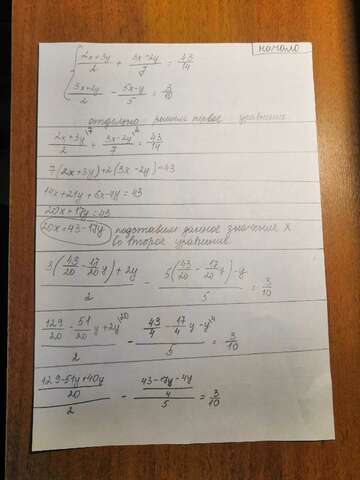 начало
(2x+3y)/2 + (3x-2y)/7 = 43/14
(3x+2y)/2 - (5x-y)/5 = 3/10
отдельно решаем первое уравнение
(2x+3y)/2 + (3x-2y)/7 = 43/14
7(2x+3y)+2(3x-2y)=43
14x+21y+6x-4y=43
20x+17y=43
20x=43-17y подставим данное значение x
во второе уравнение
(3(43/20 - 17/20 y)+2y)/2 - (5(43/20 - 17/20 y)-y)/5 = 3/10
(129/20 - 51/20 y+2y)/2 - (43/4 - 17/4 y-y)/5 = 3/10
((129-51y+40y)/20)/2 - ((43-17y-4y)/4)/5 = 3/10